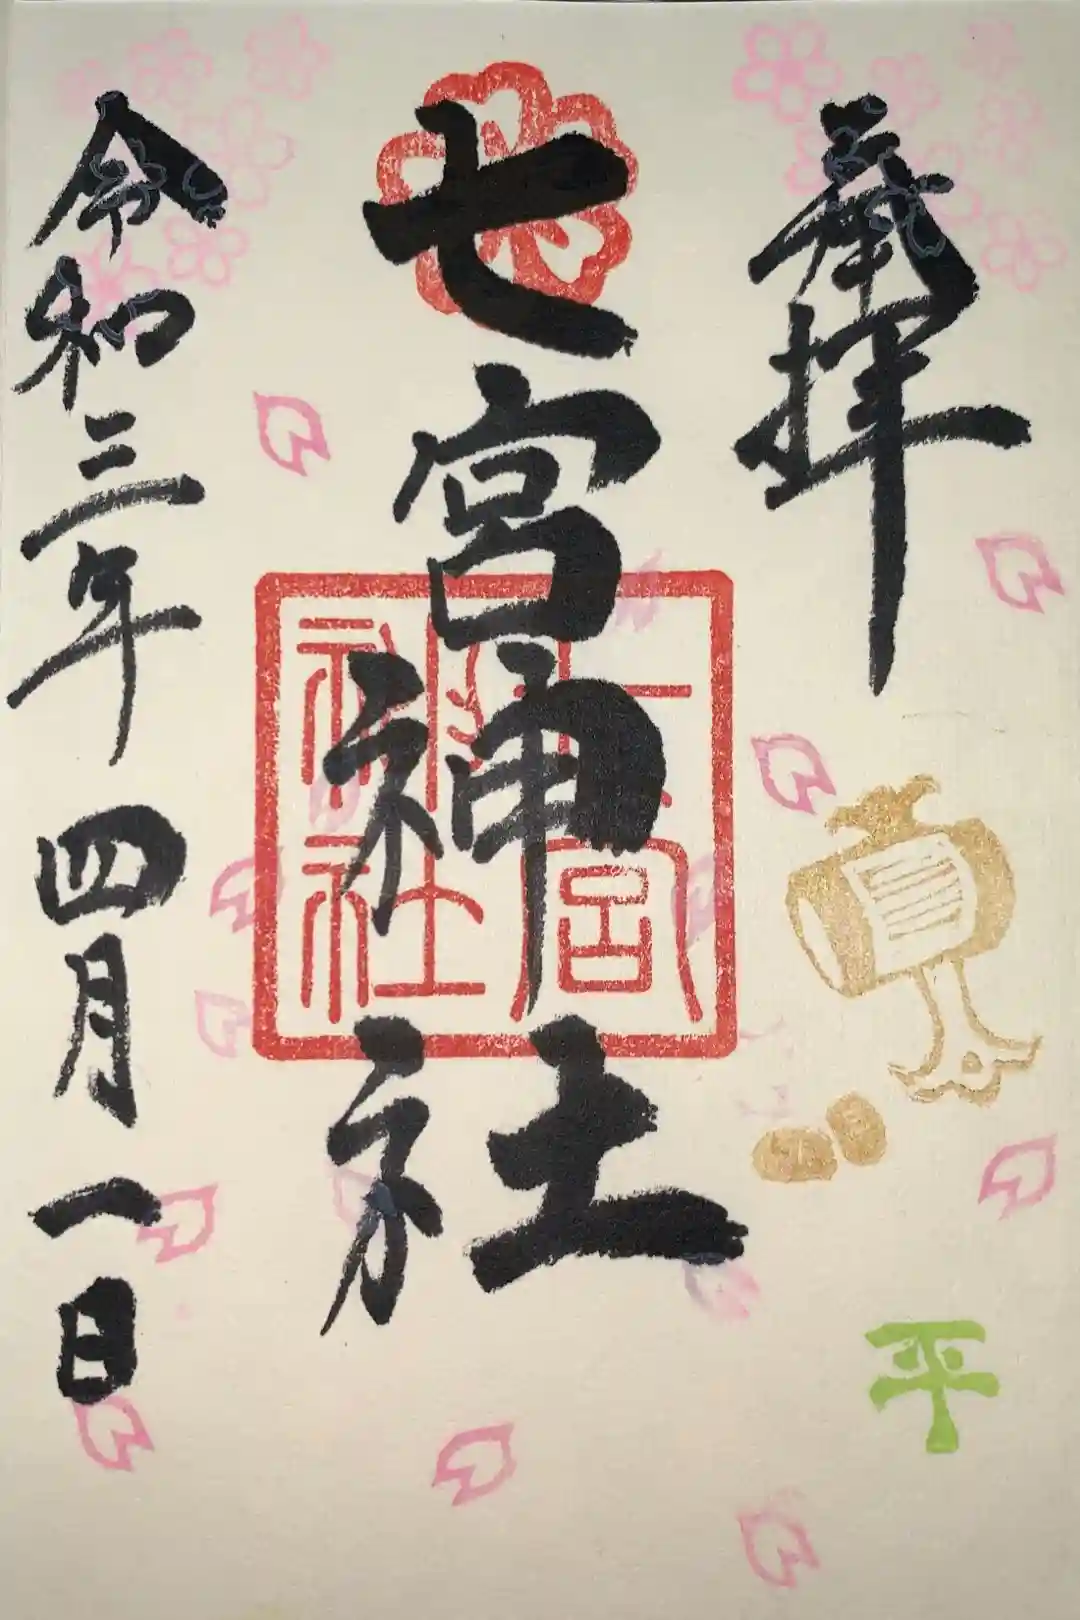 奉拝
平
七宮神社
七宮神社
令和三年四月一日